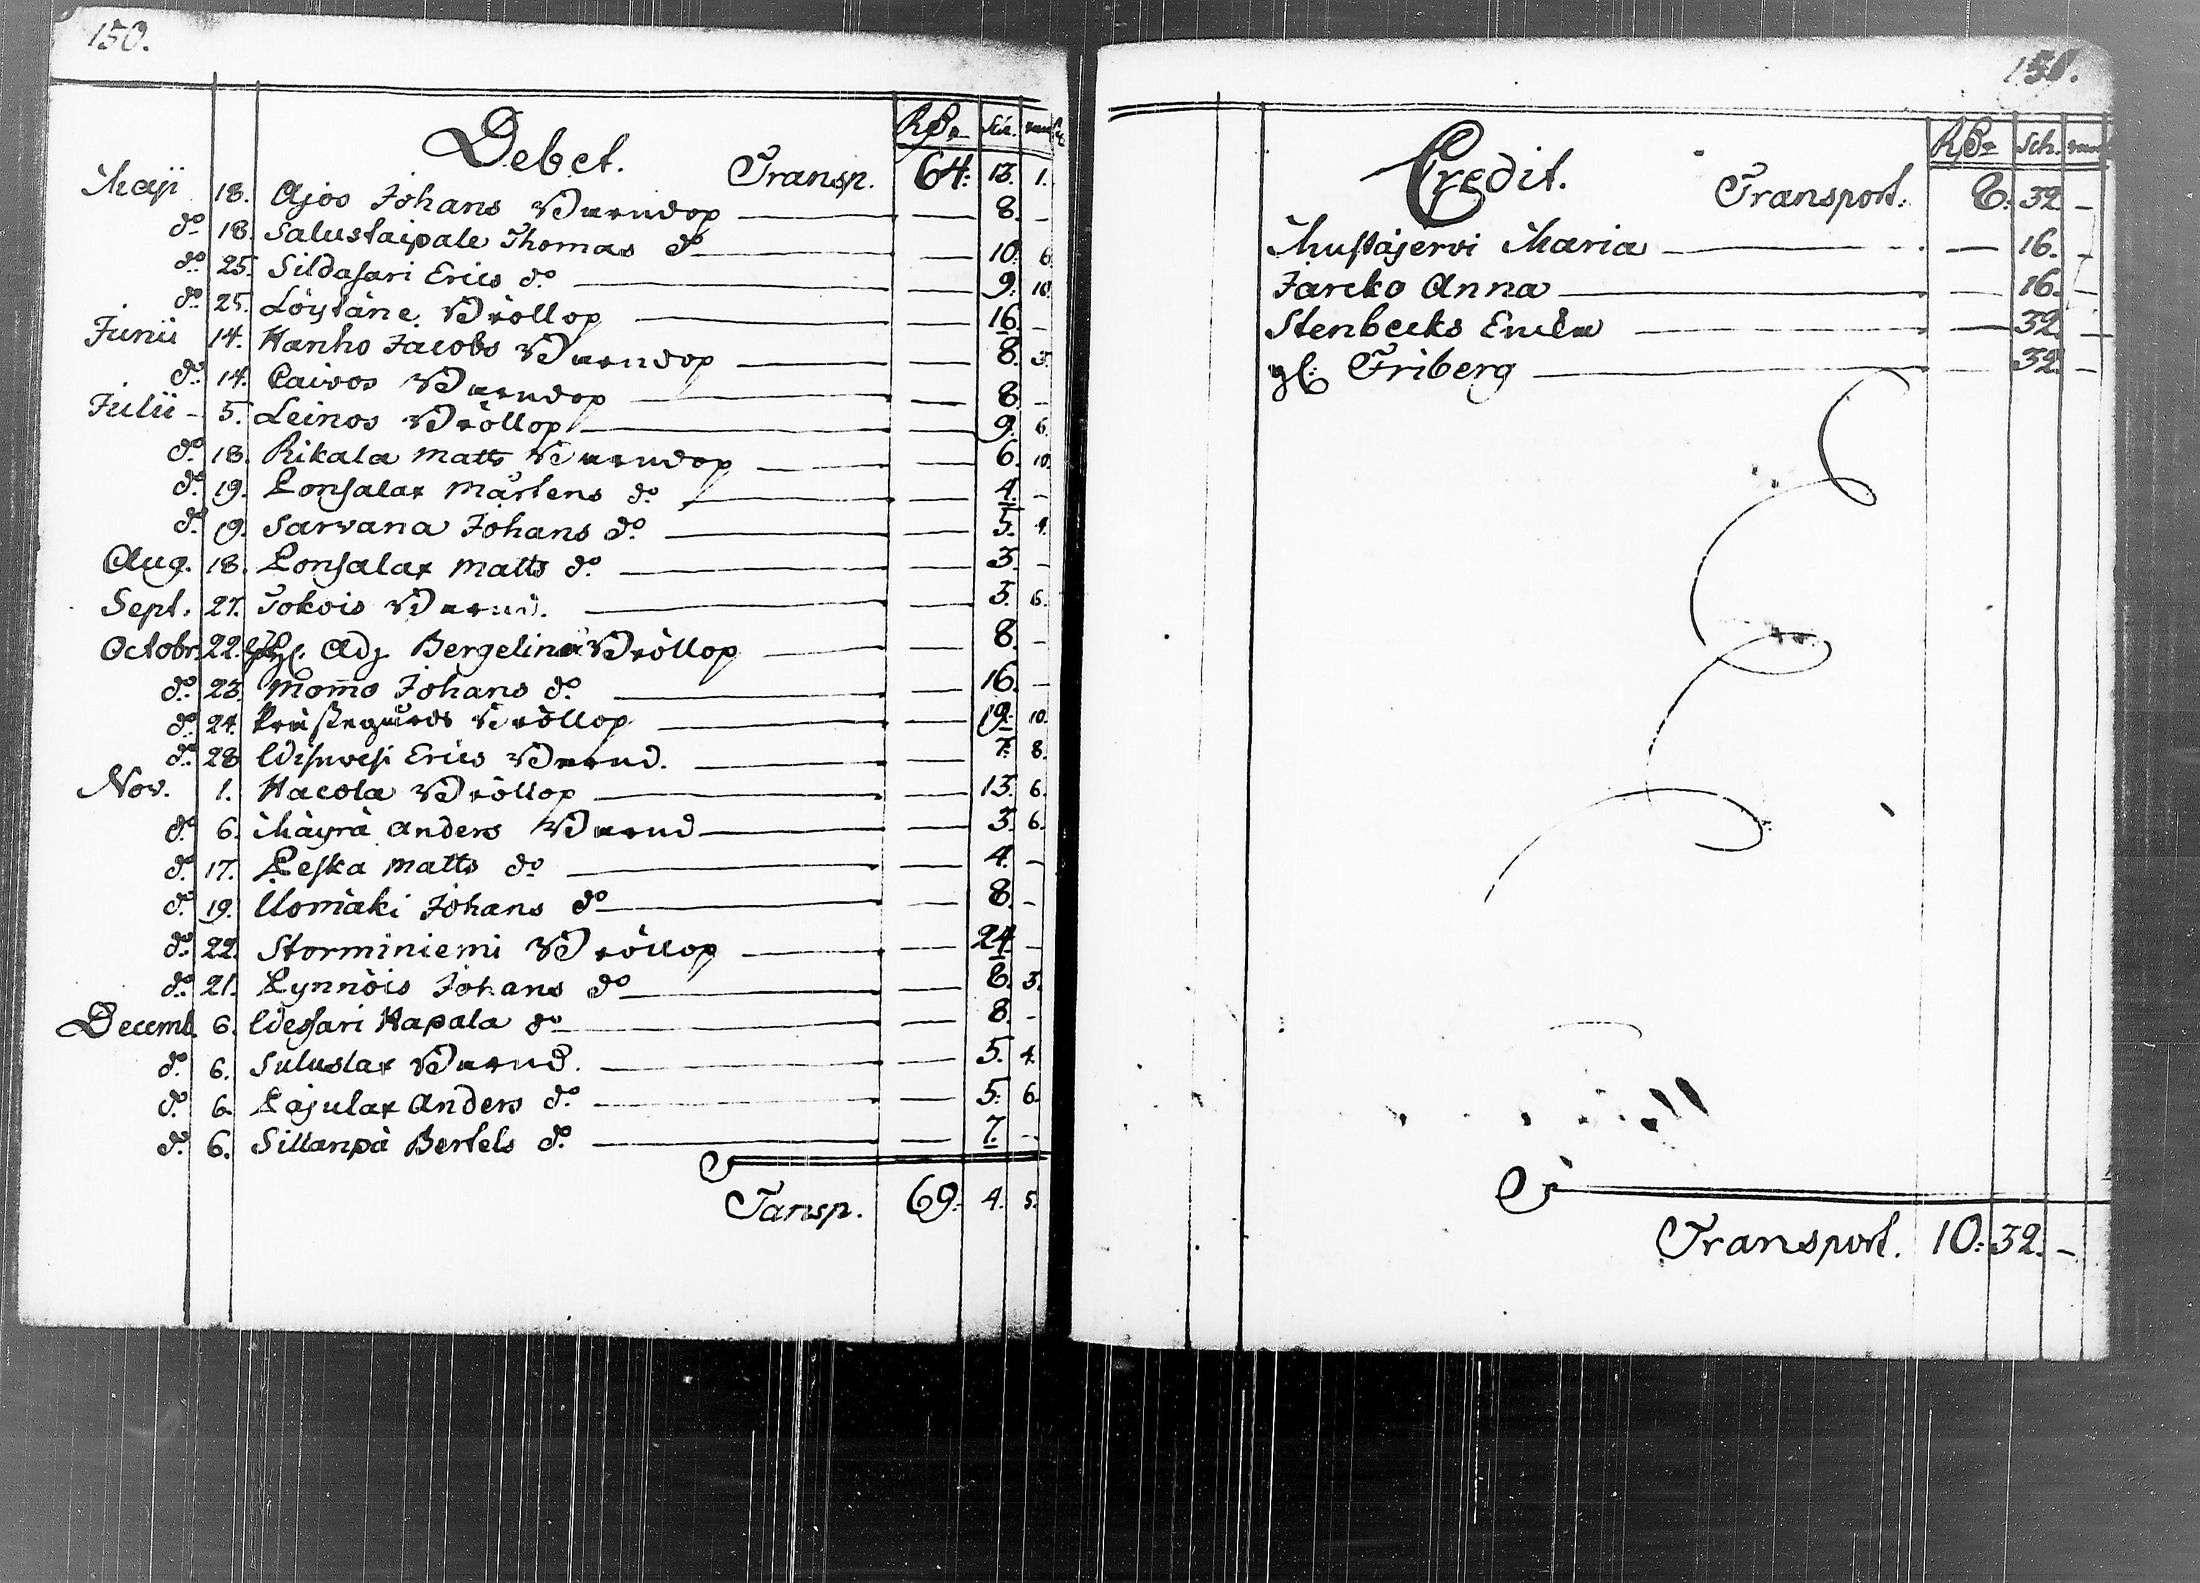 150.
Debet.
RD. Sch. run
Transp. 64. 13. 1.
Maji 18. Ajos Johans Barndop — — 8. —
do 18. Salustaipale Thomas do — — 10. 6.
do 25. Sildasari Erics do — — 9. 10.
do 25. Löytäne Bröllop — — 16. —
Junii 14. Hanho Jacobs Barndop — — 8. 3.
do 14. Caivos Barndop — — 8. —
Julii 5. Leinos Bröllop — — 9. 6.
do 18. Rikala Matts Barndop — — 6. 10.
do 19. Konsalax Mårtens do — — 4. —
do 19. Sarvana Johans do — — 5. 4.
Aug. 18. Konsalax Matts do — — 3. —
Sept. 27. Jokois Barnd. — — 3. 6.
Octobr. 22. Adj. Bergelins Bröllop — — 8. —
do 23. Mom̄o Johans do — — 16. —
do 24. Bröllop — — 19. 10.
do 28 Erics Barnd. — — 7. 8.
Nov. 1. Hacola Bröllop — — 13. 6.
do 6. Mäyrä Anders Barnd — — 3. 6.
do 17. Keska Matts do — — 4. —
do 19. Uomäki Johans do — — 8. —
do 22. Storminiemi Bröllop — — 24. —
do 21. Kynnöis Johans do — — 6. 3.
Decemb. 6. Hapala do — — 8. —
do 6. Sulustax Barnd. — — 5. 4.
do 6. Kajulax Anders do — — 5. 6.
do 6. Sillanpä Bertels do — — 7. —
Tansp. 69. 4. 5.
151.
Credit.
RD. Sch. run
Transport. 8. 32. —
Mustajervi Maria — — 16. —
Jarcko Anna — — 16. —
Stenbecks Encka — — 32. —
gl. Friberg — — 32. —
Transport. 10. 32. —